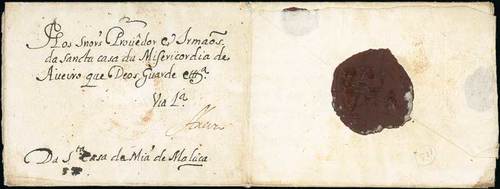 Aos Snors Provêdor e Irmaõs
da sancta casa da Misericordia de
Aveiro que Deos Guarde etta.
Via 1.a
Da Sta Casa de Mia. de Malaca